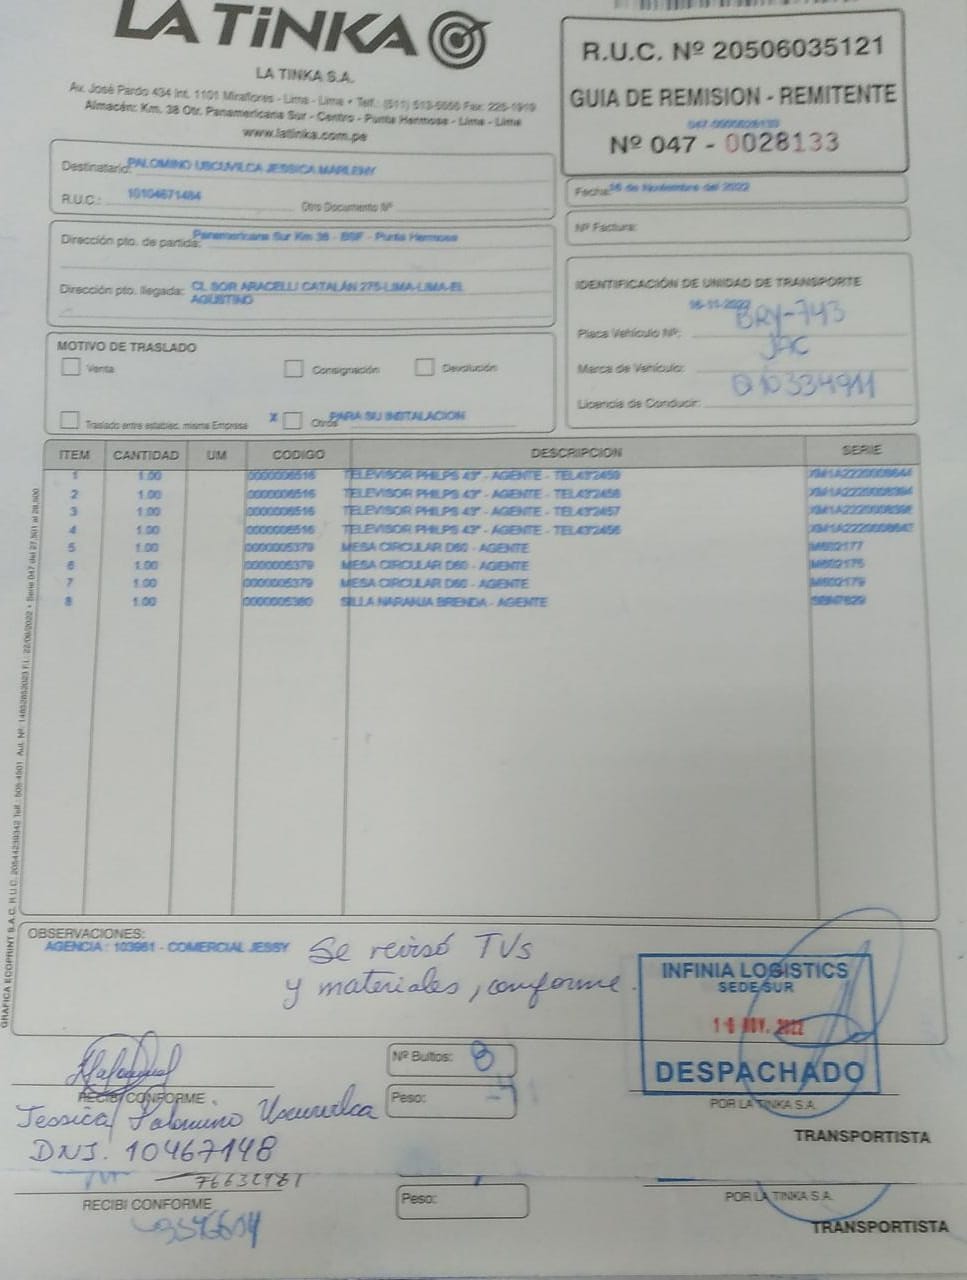 LA TiNKA
LA TINKA S.A.
Av. José Pardo 434 Int. 1101 Miraflores - Lima - Lima • Telf.: (511) 513-5555 Fax: 225-1919
Almacén: Km. 38 Otr. Panamericana Sur - Centro - Punta Hermosa - Lima - Lima
www.latinka.com.pe
R.U.C. Nº 20506035121
GUIA DE REMISION - REMITENTE
047-0000028133
Nº 047 - 0028133
Destinatario: PALOMINO USCUVILCA JESSICA MARLENY
R.U.C.: 10104671484 Otro Documento Nº
Fecha: 16 de Noviembre del 2022
Nº Factura:
Dirección pto. de partida: Panamericana Sur Km 38 - BSF - Punta Hermosa
Dirección pto. llegada: CL SOR ARACELLI CATALÁN 275-LIMA-LIMA-EL
AGUSTINO
IDENTIFICACIÓN DE UNIDAD DE TRANSPORTE
16-11-2022
Placa Vehículo Nº: BRY-743
Marca de Vehículo: JAC
Licencia de Conducir: Q10334911
MOTIVO DE TRASLADO
Venta Consignación Devolución
Traslado entre establec. misma Empresa X Otros PARA SU INSTALACION
ITEM CANTIDAD UM CODIGO DESCRIPCION SERIE
1 1.00 0000006516 TELEVISOR PHILPS 43" - AGENTE - TEL43'2459
2 1.00 0000006516 TELEVISOR PHILPS 43" - AGENTE - TEL43'2458
3 1.00 0000006516 TELEVISOR PHILPS 43" - AGENTE - TEL43'2457
4 1.00 0000006516 TELEVISOR PHILPS 43" - AGENTE - TEL43'2456
5 1.00 0000005379 MESA CIRCULAR D60 - AGENTE M602177
6 1.00 0000005379 MESA CIRCULAR D60 - AGENTE M602175
7 1.00 0000005379 MESA CIRCULAR D60 - AGENTE M602179
8 1.00 0000005380 SILLA NARANJA BRENDA - AGENTE SBN7629
OBSERVACIONES:
AGENCIA : 103961 - COMERCIAL JESSY
Se revisó TVs
y materiales, conforme.
INFINIA LOGISTICS
SEDE SUR
16 NOV. 2022
DESPACHADO
Nº Bultos: 8
Peso:
RECIBI CONFORME
Jessica Palomino Uscuvilca
DNI. 10467148
POR LA TINKA S.A.
TRANSPORTISTA
76632981
RECIBI CONFORME
Peso:
POR LA TINKA S.A.
TRANSPORTISTA